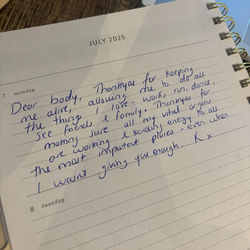 JULY 2025
7 monday
Dear body, Thankyou for keeping
me alive, allowing me to do all
the things I love - work, run, dance,
see friends & family. Thankyou for
making sure all my vital organs
are working & sending energy to all
the most important places - even when
I wasn't giving you enough. R x
8 tuesday